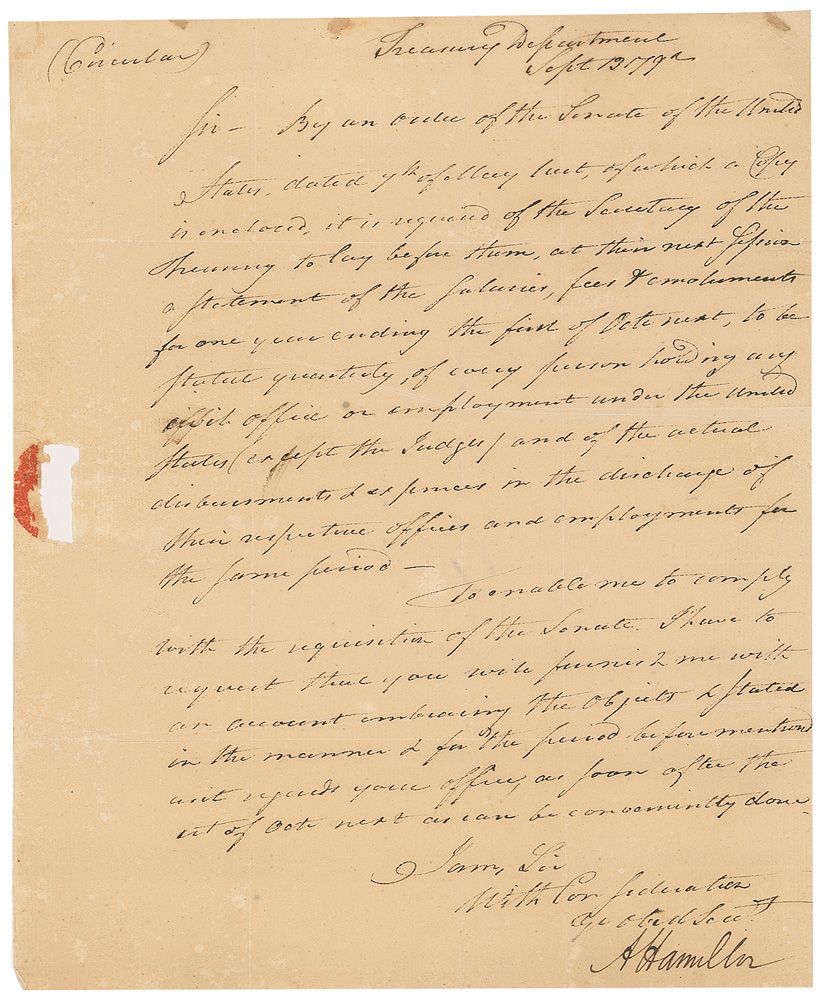 (Circular)
Treasury Department
Sept 13 1792
Sir – By an order of the Senate of the United
States, dated 7th of May last, of which a Copy
is enclosed, it is required of the Secretary of the
Treasury to lay before them, at their next Session
a statement of the Salaries, fees & emoluments
for one year ending the first of Octr next, to be
stated quarterly, of every person holding any
civil office or employment under the United
States (except the Judges) and of the actual
disbursments & expences in the discharge of
their respective offices and employments for
the same period –
To enable me to comply
with the requisition of the Senate. I have to
request that you will furnish me with
an account embracing the Objects & stated
in the manner & for the period before mentioned
as it regards your office, as soon after the
1st of Octr next as can be conveniently done –
I am, Sir
With Consideration
Yr Obed Servt
A Hamilton